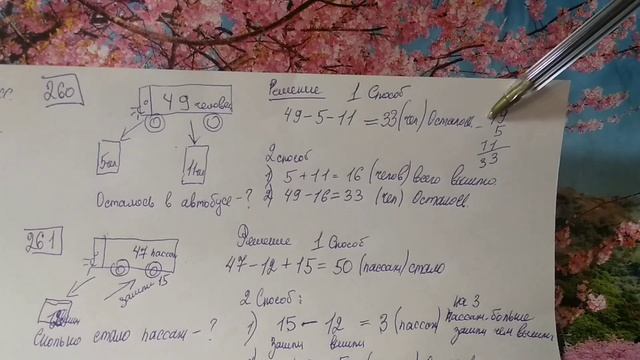 260
49 человек
5 чел
11 чел
Осталось в автобусе - ?
Решение 1 Способ
49 - 5 - 11 = 33 (чел) Осталось
49
5
11
33
2 способ
1) 5 + 11 = 16 (челов) всего вышло.
2) 49 - 16 = 33 (чел) Осталось.
261
47 пассаж
зашли 15
Сколько стало пассаж - ?
Решение 1 Способ
47 - 12 + 15 = 50 (пассаж) стало
2 Способ:
1) 15 - 12 = 3 (пассаж) на 3 пассаж. больше
зашли вышли зашли чем вышли.